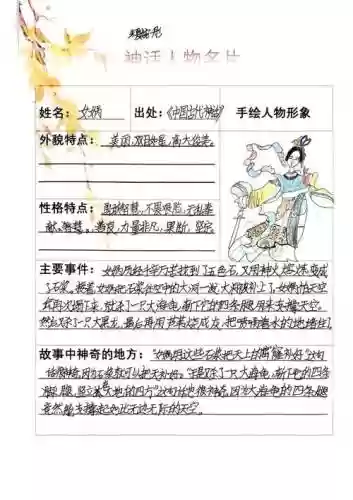 神话人物名片
姓名：女娲 出处：《中国古代神话》 手绘人物形象
外貌特点：英勇，双目如星，高大俊美。
性格特点：勇敢智慧，不畏艰险，无私奉
献，善良，力量非凡，果断，坚定
主要事件：女娲历经千辛万苦找到了五色石，又用神火熔炼变成
了石浆。接着女娲把石浆往空中的大洞一泼，大洞被补上了，女娲怕天空
再次塌下来，就杀了一只大海龟，斩下它的四条腿用来支撑天空。
然后又杀了一只大黑龙，最后再用芦苇烧成灰，把喷着水的地缝堵住了
故事中神奇的地方：“女娲用这些石浆把天上的窟窿补好”这句
话很神奇，因为石浆就可以把天补好。“于是杀了一只大海龟，斩下它的四条
腿，竖立在大地的四方”这句话也很神奇，因为大海龟的四条腿
竟然能支撑起如此无边无际的天空。